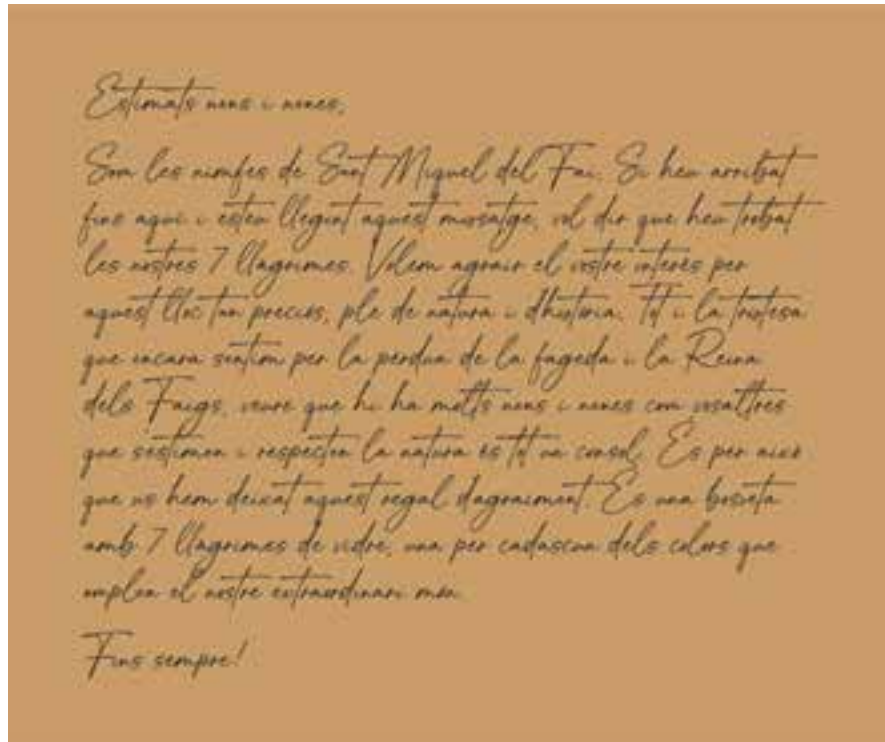 Estimats nens i nenes,
Som les nimfes de Sant Miquel del Fai. Si heu arribat
fins aquí i esteu llegint aquest missatge, vol dir que heu trobat
les nostres 7 llàgrimes. Volem agrair el vostre interès per
aquest lloc tan preciós, ple de natura i d'història. Tot i la tristesa
que encara sentim per la pèrdua de la fageda i la Reina
dels Faigs, veure que hi ha molts nens i nenes com vosaltres
que s'estimen i respecten la natura és tot un consol. És per això
que us hem deixat aquest regal d'agraïment. És una bosseta
amb 7 llàgrimes de vidre, una per cadascun dels colors que
omplen el nostre extraordinari món.
Fins sempre!